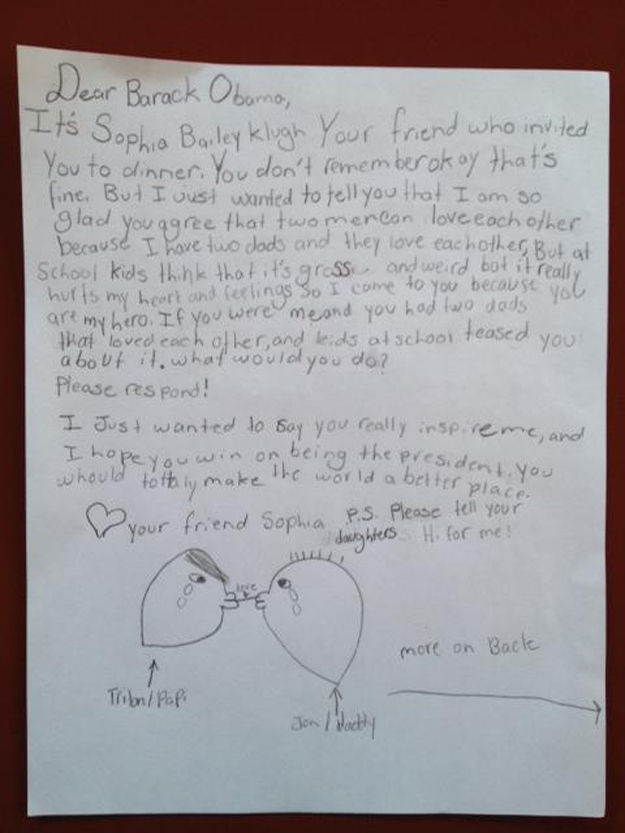 Dear Barack Obama,
It's Sophia Bailey klugh Your friend who invited
You to dinner. You don't remember okay that's
fine. But I Just wanted to tell you that I am so
glad you agree that two men can love each other
because I have two dads and they love each other, But at
School kids think that it's gross and weird but it really
hurts my heart and feelings So I come to you because you
are my hero. If you were me and you had two dads
that loved each other, and kids at school teased you
about it. what would you do?
Please respond!
I Just wanted to say you really inspire me, and
I hope you win on being the president. you
whould totaly make the world a better place.
your friend Sophia
P.S. Please tell your
daughters Hi for me!
love
more on Back
/ Papi
Jon / daddy